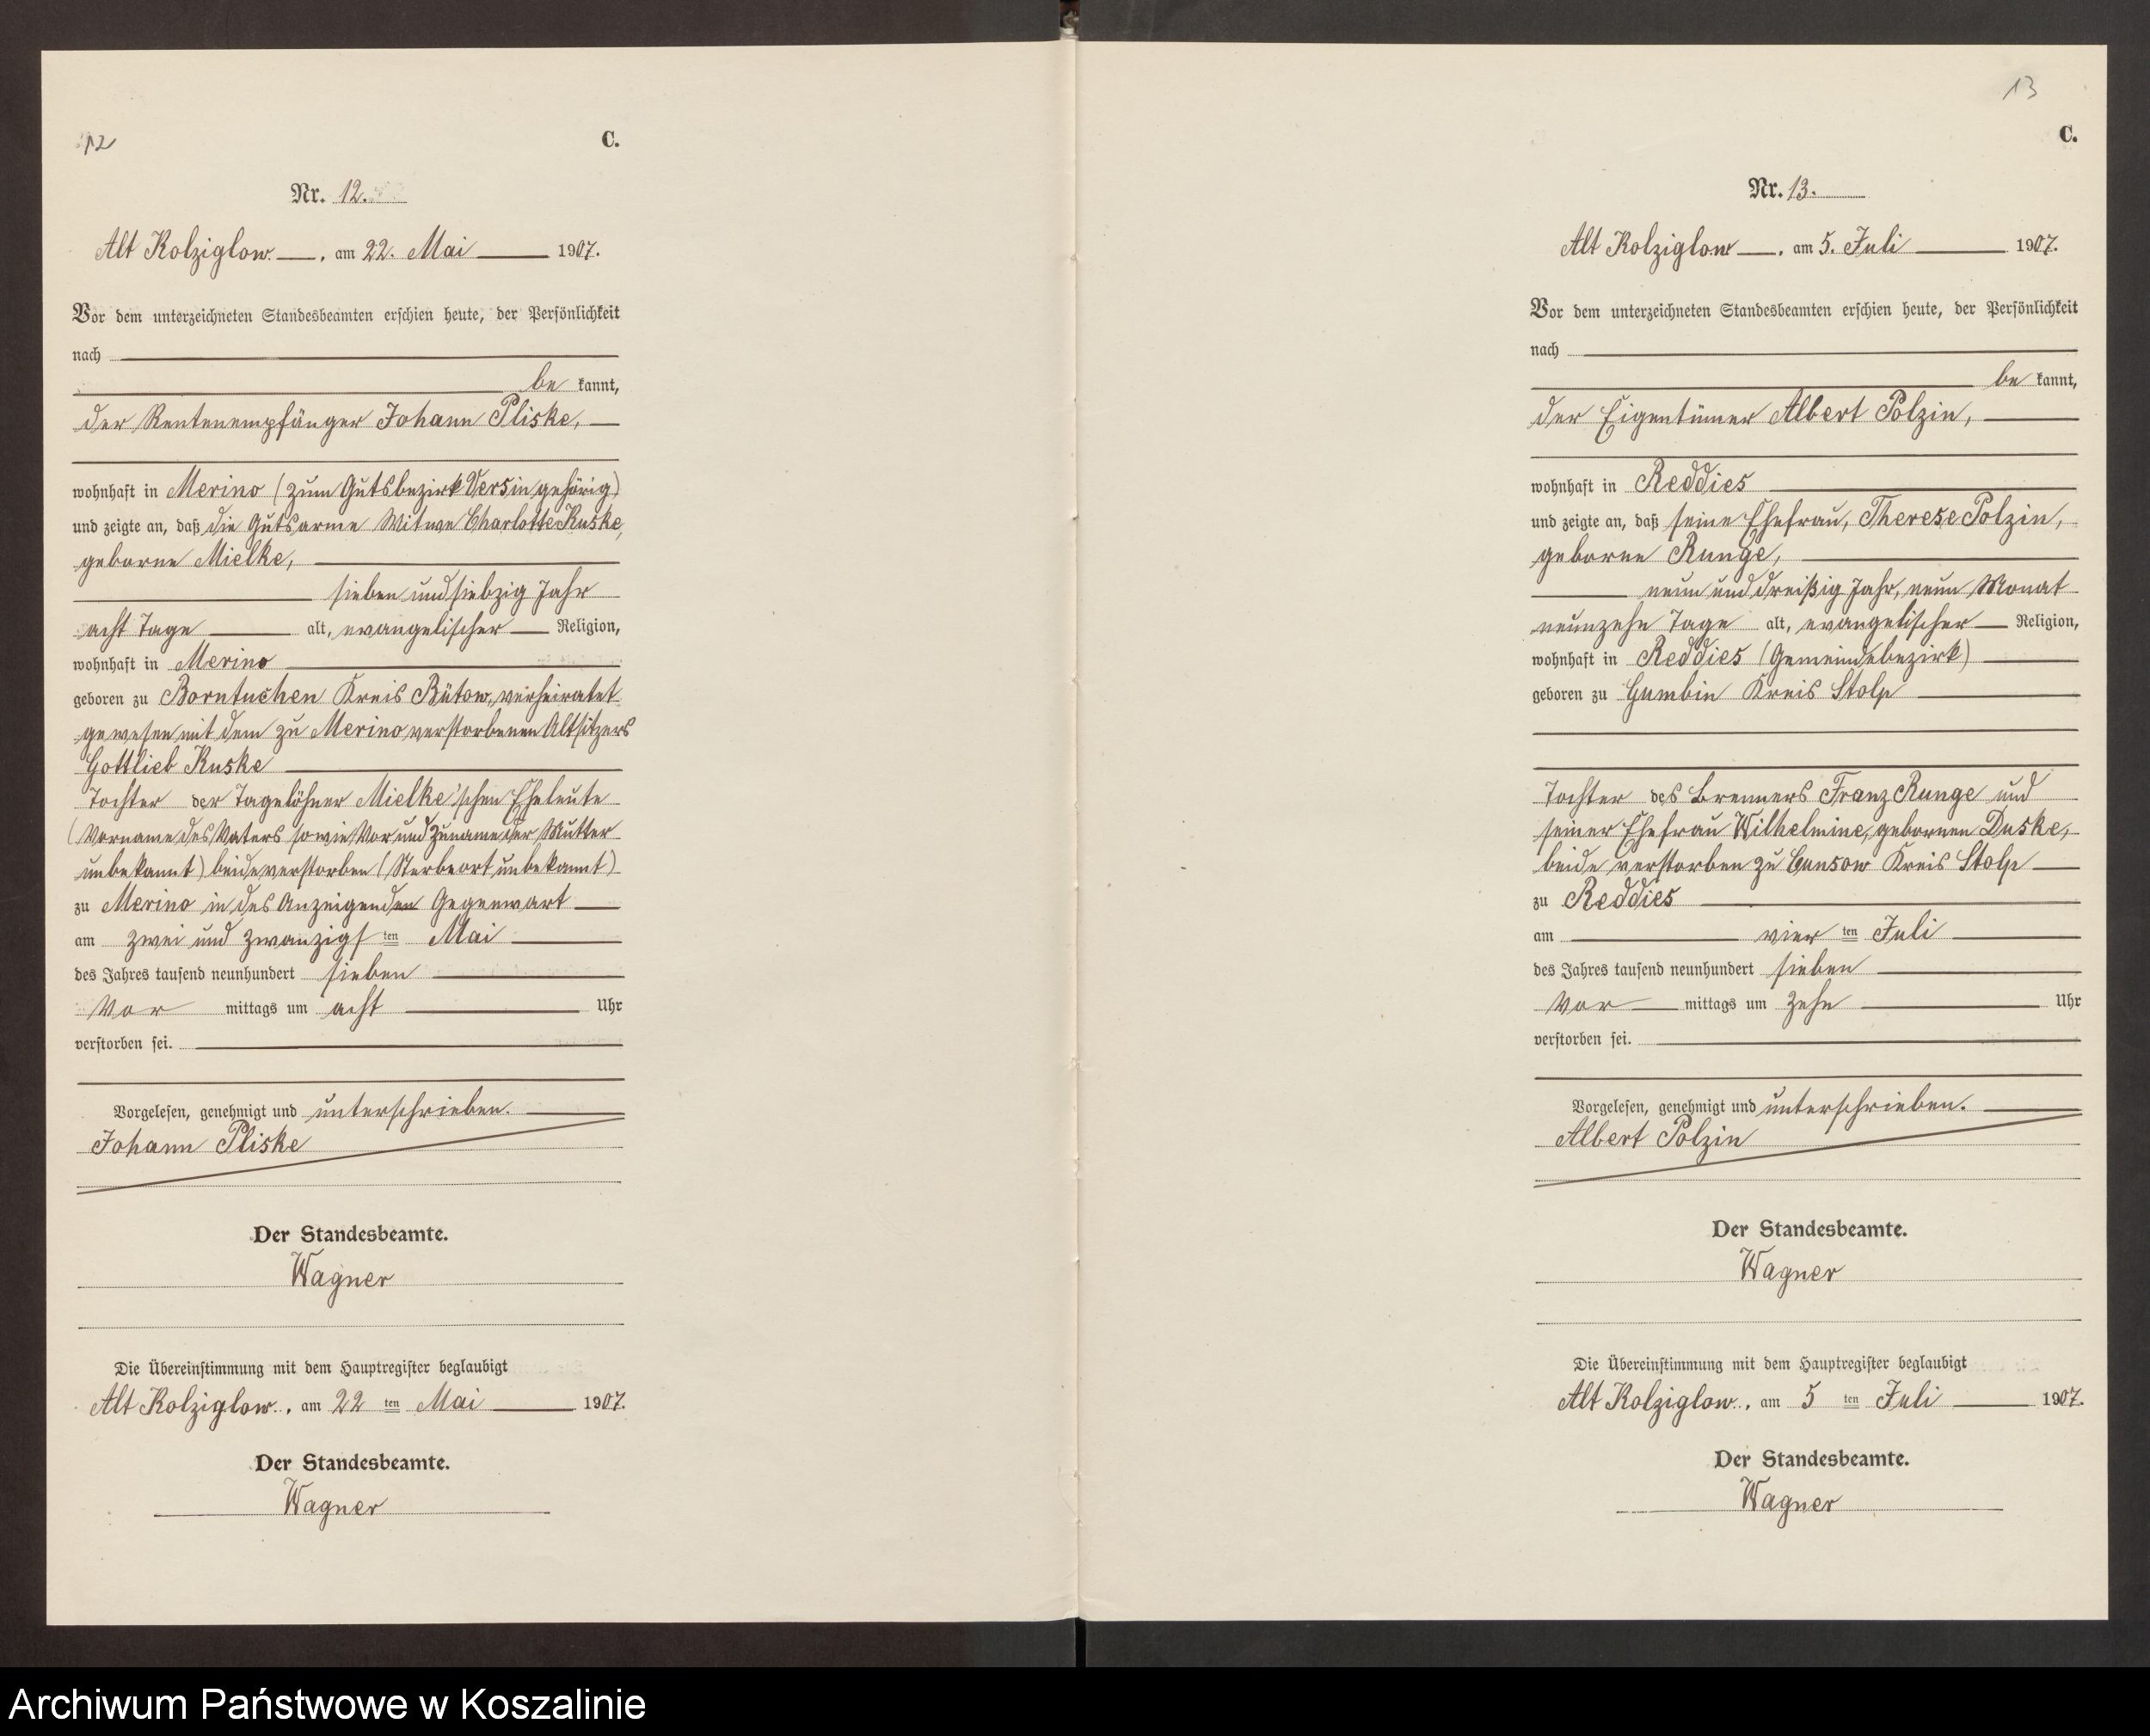 12
C.
Nr. 12.
Alt Kolziglow, am 22. Mai 1907.
Vor dem unterzeichneten Standesbeamten erschien heute, der Persönlichkeit
nach
be kannt,
der Rentenempfänger Johann Pliske,
wohnhaft in Merino (zum Gutsbezirk Versin gehörig)
und zeigte an, daß die Gutsarme Witwe Charlotte Kuske,
geborne Mielke,
sieben und siebzig Jahr
acht Tage alt, evangelischer Religion,
wohnhaft in Merino
geboren zu Borntuchen Kreis Bütow, verheiratet
gewesen mit dem zu Merino verstorbenen Altsitzers
Gottlieb Kuske
Tochter der Tagelöhner Mielke'schen Eheleute
(Vorname des Vaters sowie Vor und Zuname der Mutter
unbekannt) beide verstorben (Sterbeort unbekannt)
zu Merino in des Anzeigenden Gegenwart
am zwei und zwanzigsten Mai
des Jahres tausend neunhundert sieben
Vor mittags um acht Uhr
verstorben sei.
Vorgelesen, genehmigt und unterschrieben.
Johann Pliske
Der Standesbeamte.
Wagner
Die Übereinstimmung mit dem Hauptregister beglaubigt
Alt Kolziglow, am 22 ten Mai 1907.
Der Standesbeamte.
Wagner
13
C.
Nr. 13.
Alt Kolziglow, am 5. Juli 1907.
Vor dem unterzeichneten Standesbeamten erschien heute, der Persönlichkeit
nach
be kannt,
der Eigentümer Albert Polzin,
wohnhaft in Reddies
und zeigte an, daß seine Ehefrau, Therese Polzin,
geborne Runge,
neun und dreißig Jahr, neun Monat
neunzehn Tage alt, evangelischer Religion,
wohnhaft in Reddies (Gemeindebezirk)
geboren zu Gumbin Kreis Stolp
Tochter des Brenners Franz Runge und
seiner Ehefrau Wilhelmine, gebornen Duske,
beide verstorben zu Cunsow Kreis Stolp
zu Reddies
am vier ten Juli
des Jahres tausend neunhundert sieben
Vor mittags um zehn Uhr
verstorben sei.
Vorgelesen, genehmigt und unterschrieben.
Albert Polzin
Der Standesbeamte.
Wagner
Die Übereinstimmung mit dem Hauptregister beglaubigt
Alt Kolziglow, am 5 ten Juli 1907.
Der Standesbeamte.
Wagner
Archiwum Państwowe w Koszalinie